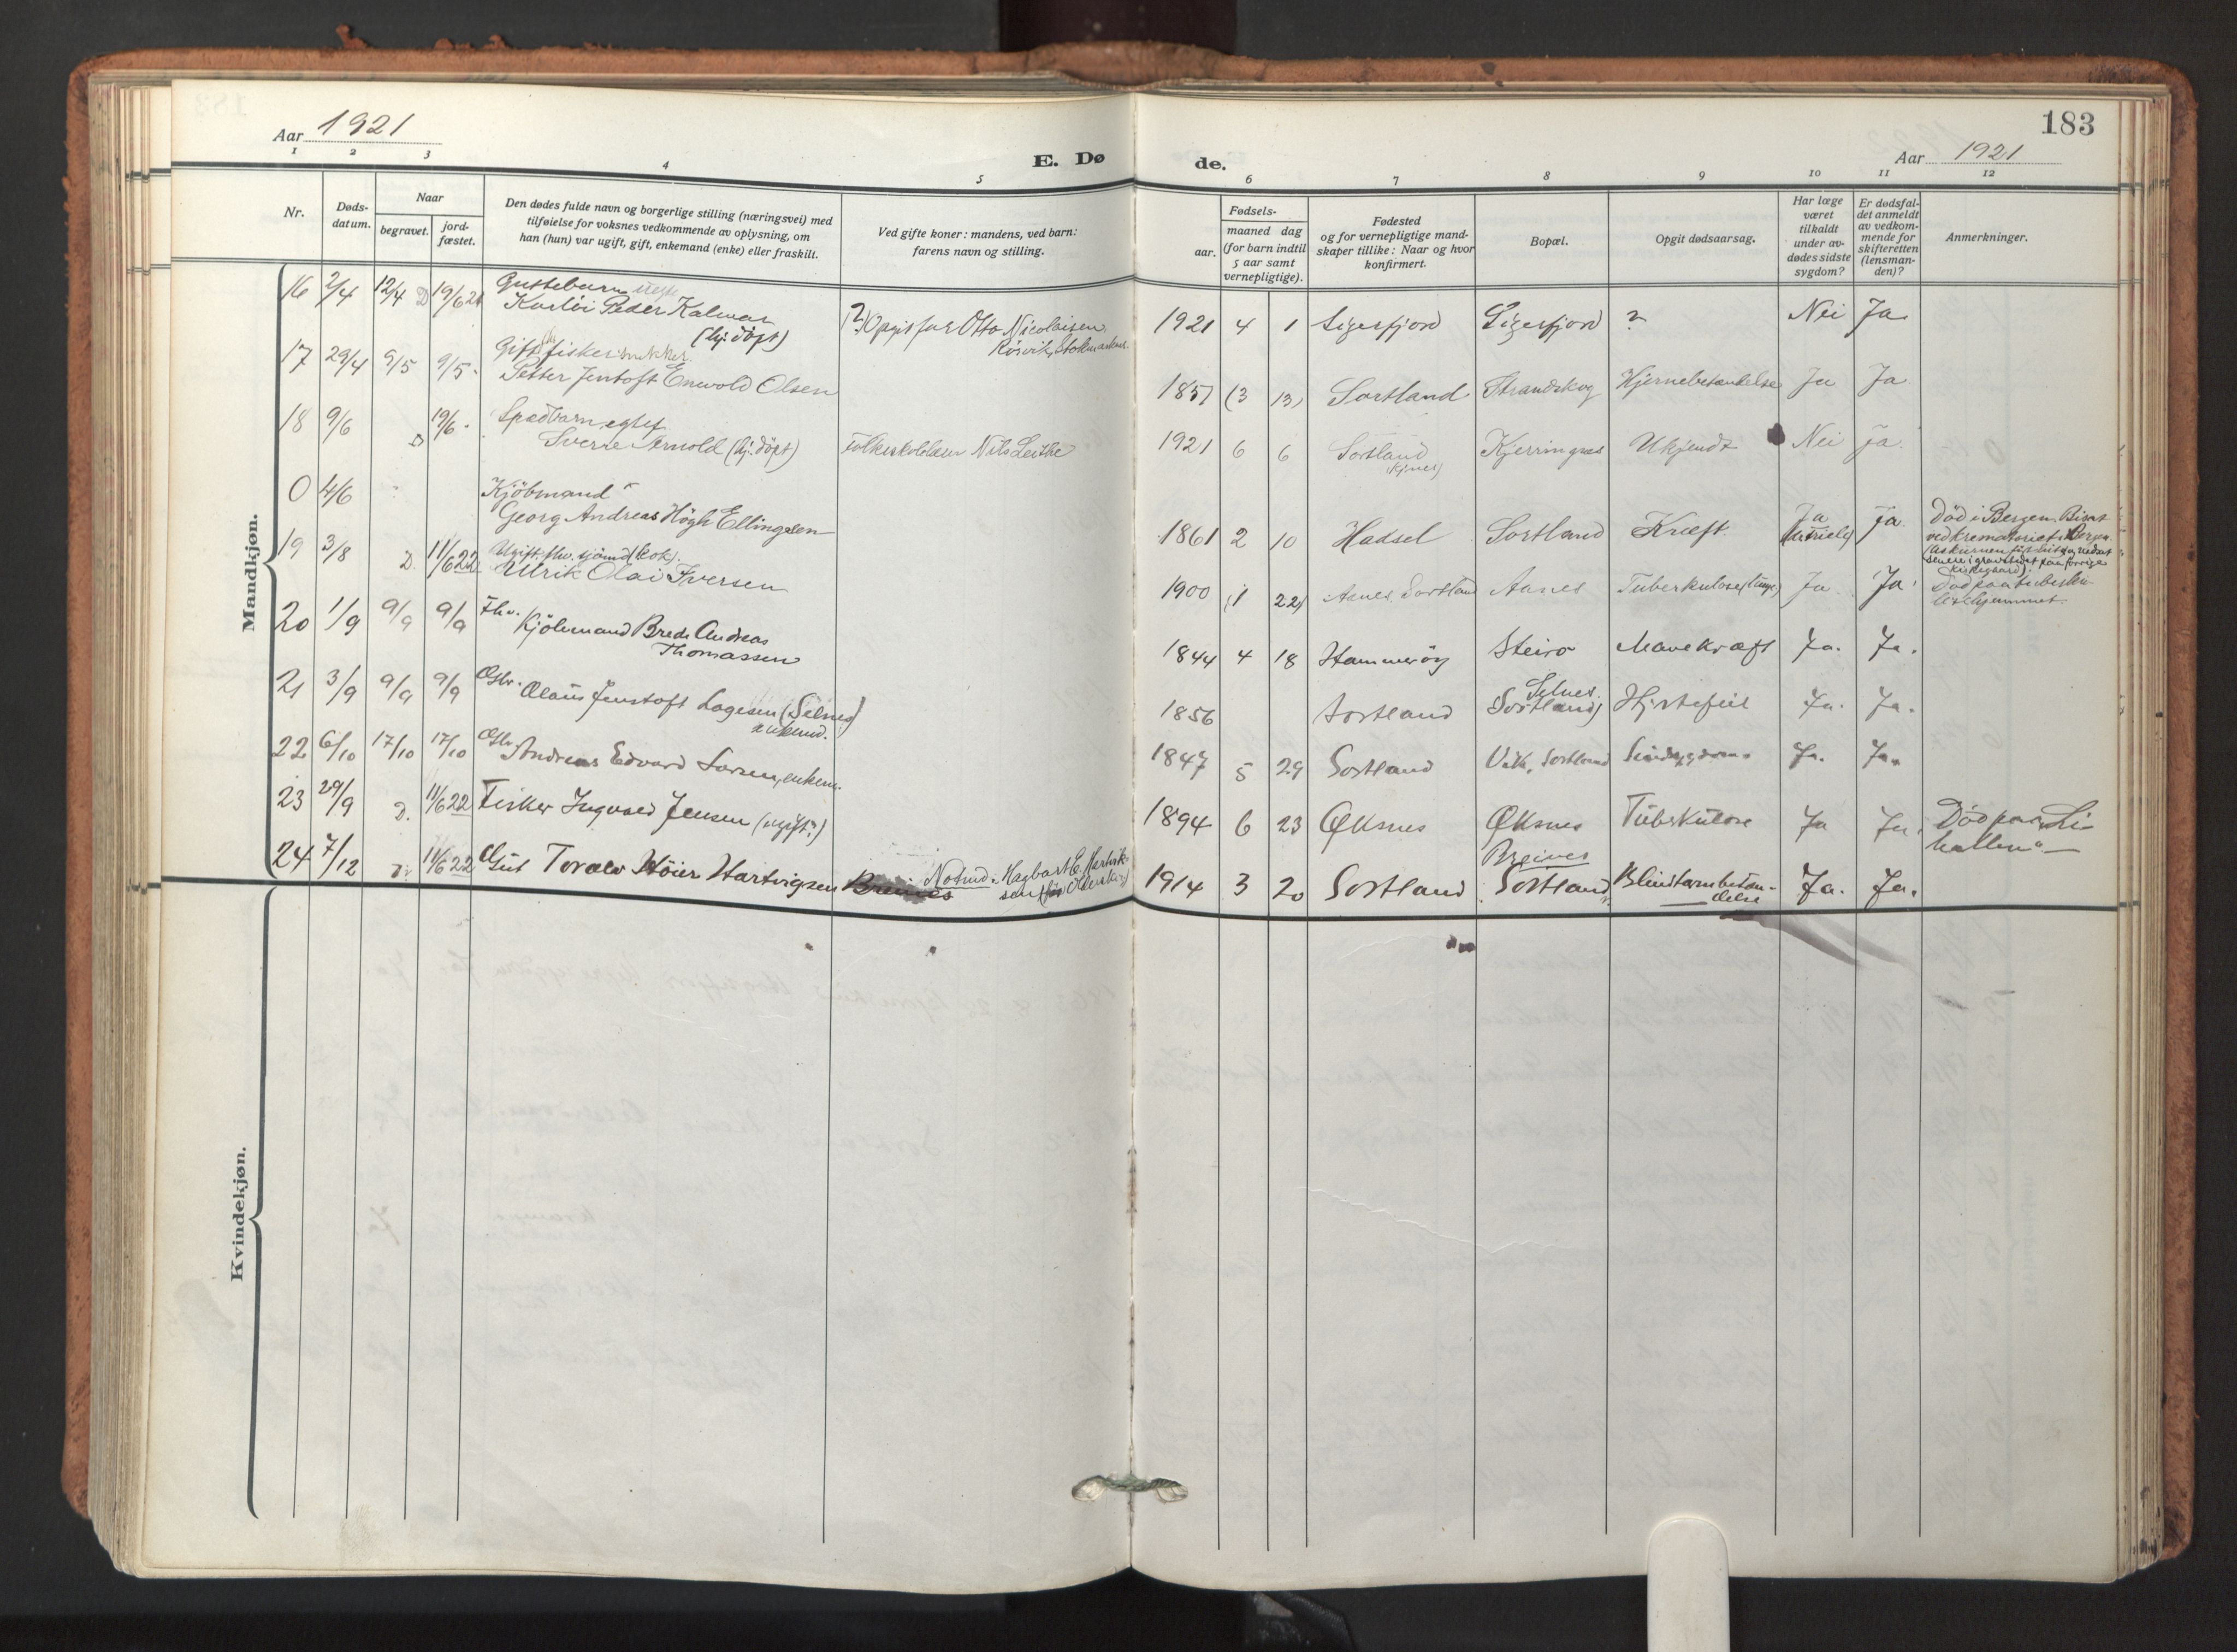 183
Aar 1921
Aar 1921
E. Dø
de.
1 2 3 4 5 6 7 8 9 10 11 12
Nr.
Døds-
datum.
Naar
begravet.
jord-
fæstet.
Den dødes fulde navn og borgerlige stilling (næringsvei) med
tilføielse for voksnes vedkommende av oplysning, om
han (hun) var ugift, gift, enkemand (enke) eller fraskilt.
Ved gifte koner: mandens, ved barn:
farens navn og stilling.
Fødsels-
aar.
maaned dag
(for barn indtil
5 aar samt
vernepligtige).
Fødested
og for vernepligtige mand-
skaper tillike: Naar og hvor
konfirmert.
Bopæl.
Opgit dødsaarsag.
Har læge
været
tilkaldt
under av-
dødes sidste
sygdom?
Er dødsfal-
det anmeldt
av vedkom-
mende for
skifteretten
(lensman-
den)?
Anmerkninger.
Mandkjøn.
16 2/4 12/4 D 19/6 21 Guttebarn uegte
Karlöi Peder Kalmar
(hj. döpt)
(?) Opgit far Otto Nicolaisen
Rösvik, Stokmarknes.
1921 4 1 Sigerfjord Sigerfjord ? Nei Ja
17 29/4 9/5 9/5 Gift fisker snekker
Petter Jentoft Enevold Olsen
1851 (3 13) Sortland Strandskog Hjernebetændelse Ja Ja
18 9/6 D 19/6 Spædbarn, egtef.
Sverre Arnold (hj. döpt)
Folkeskolelærer Nils Leithe
1921 6 6 Sortland Kjerringnes Ukjendt Nei Ja.
0 4/6 Kjöbmand
Georg Andreas Högh Ellingsen
1861 2 10 Hadsel Sortland Kræft. Ja Ja.
Död i Bergen. Bisat
ved krematoriet i Bergen.
19 3/8 D. 11/6 22 Ugift fhv. sjömd (kok).
Ulrik Olai Iversen
1900 (1 22) Aanes, Sortland Aanes Tuberkulose (lunge) Ja Ja
20 1/9 9/9 9/9 Fhv.
Kjöbmand Brede Andreas
Thomassen
1844 4 18 Hammeröy Steiro Mavekræft Ja. Ja.
21 3/9 9/9 9/9 Olaus Jentoft Lagesen (Selnes)
enkemd.
1856 Sortland Selnes.
Sortland) Hjertefeil Ja. Ja.
22 6/10 17/10 17/10 Andreas Edvard Larsen, enkem.
1847 5 29 Sortland Vik, Sortland Sindssygdom Ja. Ja.
23 29/9 D. 11/6 22 Fisker Ingvald Jensen (ugift?)
1894 6 23 Öksnes Öksnes Tuberkulose Ja Ja. Död paa "Li-
hallen".
24 7/12 D. 11/6 22 Gut Toralv Höier Hartvigsen Breines
Notmd. Hagbart E. Hartvik-
sen
1914 3 20 Sortland Breines
Sortland Blindtarmbetæn-
delse Ja. Ja.
Kvindekjøn.